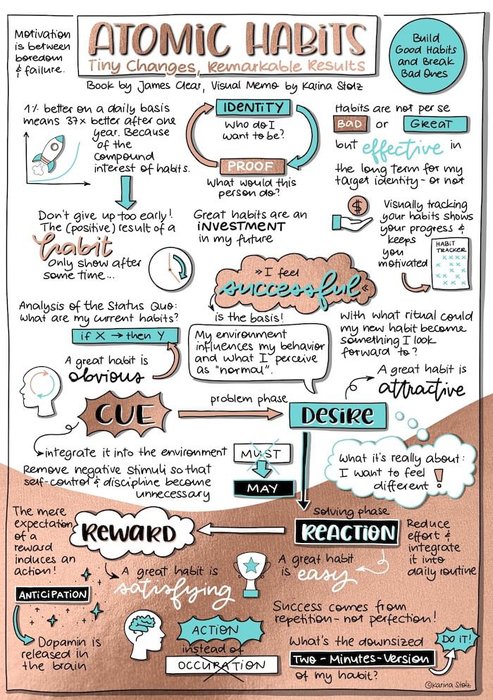 Motivation
is between
boredom
& failure.
ATOMIC HABITS
Tiny Changes, Remarkable Results
Book by James Clear, Visual Memo by Karina Stolz
Build
Good Habits
and Break
Bad Ones
1% better on a daily basis
means 37x better after one
year. Because
of the
compound
interest of habits.
IDENTITY
Who do I
want to be?
PROOF
What would this
person do?
Habits are not per se
BAD or GREAT
but effective in
the long term for my
target identity - or not
Don't give up too early!
The (positive) result of a
habit
only show after
some time...
Great habits are an
INVESTMENT
in my future
$
Visually tracking
your habits shows
your progress &
keeps
you
motivated
HABIT
TRACKER
»I feel
successful«
is the basis!
Analysis of the Status Quo:
what are my current habits?
if X → then Y
A great habit is
obvious
My environment
influences my behavior
and what I perceive
as "normal".
With what ritual could
my new habit become
something I look
forward to?
A great habit is
attractive
CUE
problem phase
DESIRE
integrate it into the environment
Remove negative stimuli so that
self-control & discipline become
unnecessary
MUST
MAY
What it's really about:
I want to feel
different!
The mere
expectation
of a
reward
induces an
action!
REWARD
solving phase
REACTION
Reduce
effort &
integrate
it into
daily routine
A great habit is
satisfying
A great habit
is easy
ANTICIPATION
Dopamin is
released in
the brain
ACTION
instead of
OCCUPATION
Success comes from
repetition - not perfection!
What's the downsized
Two-Minutes-Version
of my habit?
DO IT!
©Karina Stolz